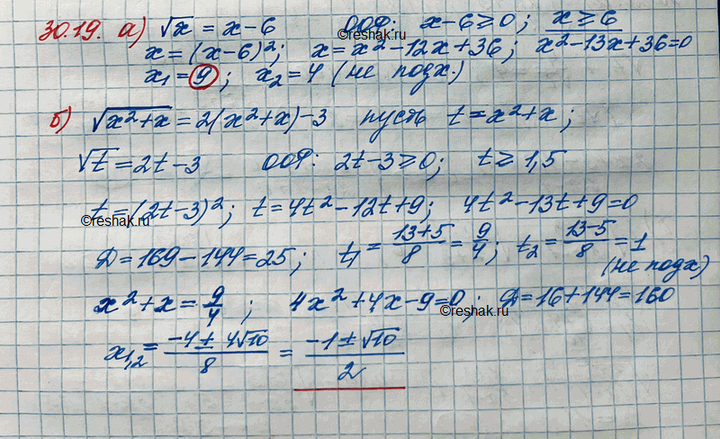 30.19. а) √x = x-6 ООФ: x-6≥0; x≥6
x=(x-6)²; x=x²-12x+36; x²-13x+36=0
x₁=9; x₂=4 (не подх.)
б) √x²+x=2(x²+x)-3 пусть t=x²+x;
√t=2t-3 ООФ: 2t-3≥0; t≥1,5
t=(2t-3)²; t=4t²-12t+9; 4t²-13t+9=0
©reshak.ru
Д=169-144=25; t₁=13+5/8=9/4; t₂=13-5/8=1
(не подх)
x²+x=9/4; 4x²+4x-9=0; Д=16+144=160
©reshak.ru
x₁,₂=-4±4√10/8=-1±√10/2